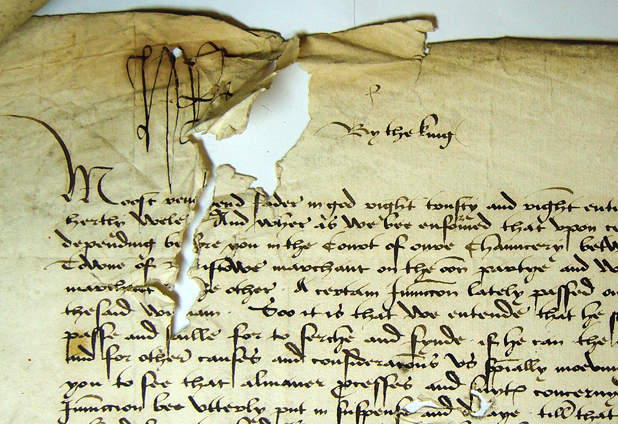 By the king
Moost reverend fader in god right trusty and right enti
hertly wele And wher as we bee enformed that upon c
depending before you in the Court of oure Chauncery betw
Towne of Bristowe marchant on the oon partye and W
marchant on the other . A certain Iniunccon lately passed on
the said William . Soo it is that we entende that he s
passe and saille for to serche and fynde if he can the
and for other causes and consideracons us specially moevin
you to see that almaner processes and suyts concerny
Iniunccion bee utterly put in suspense and till that